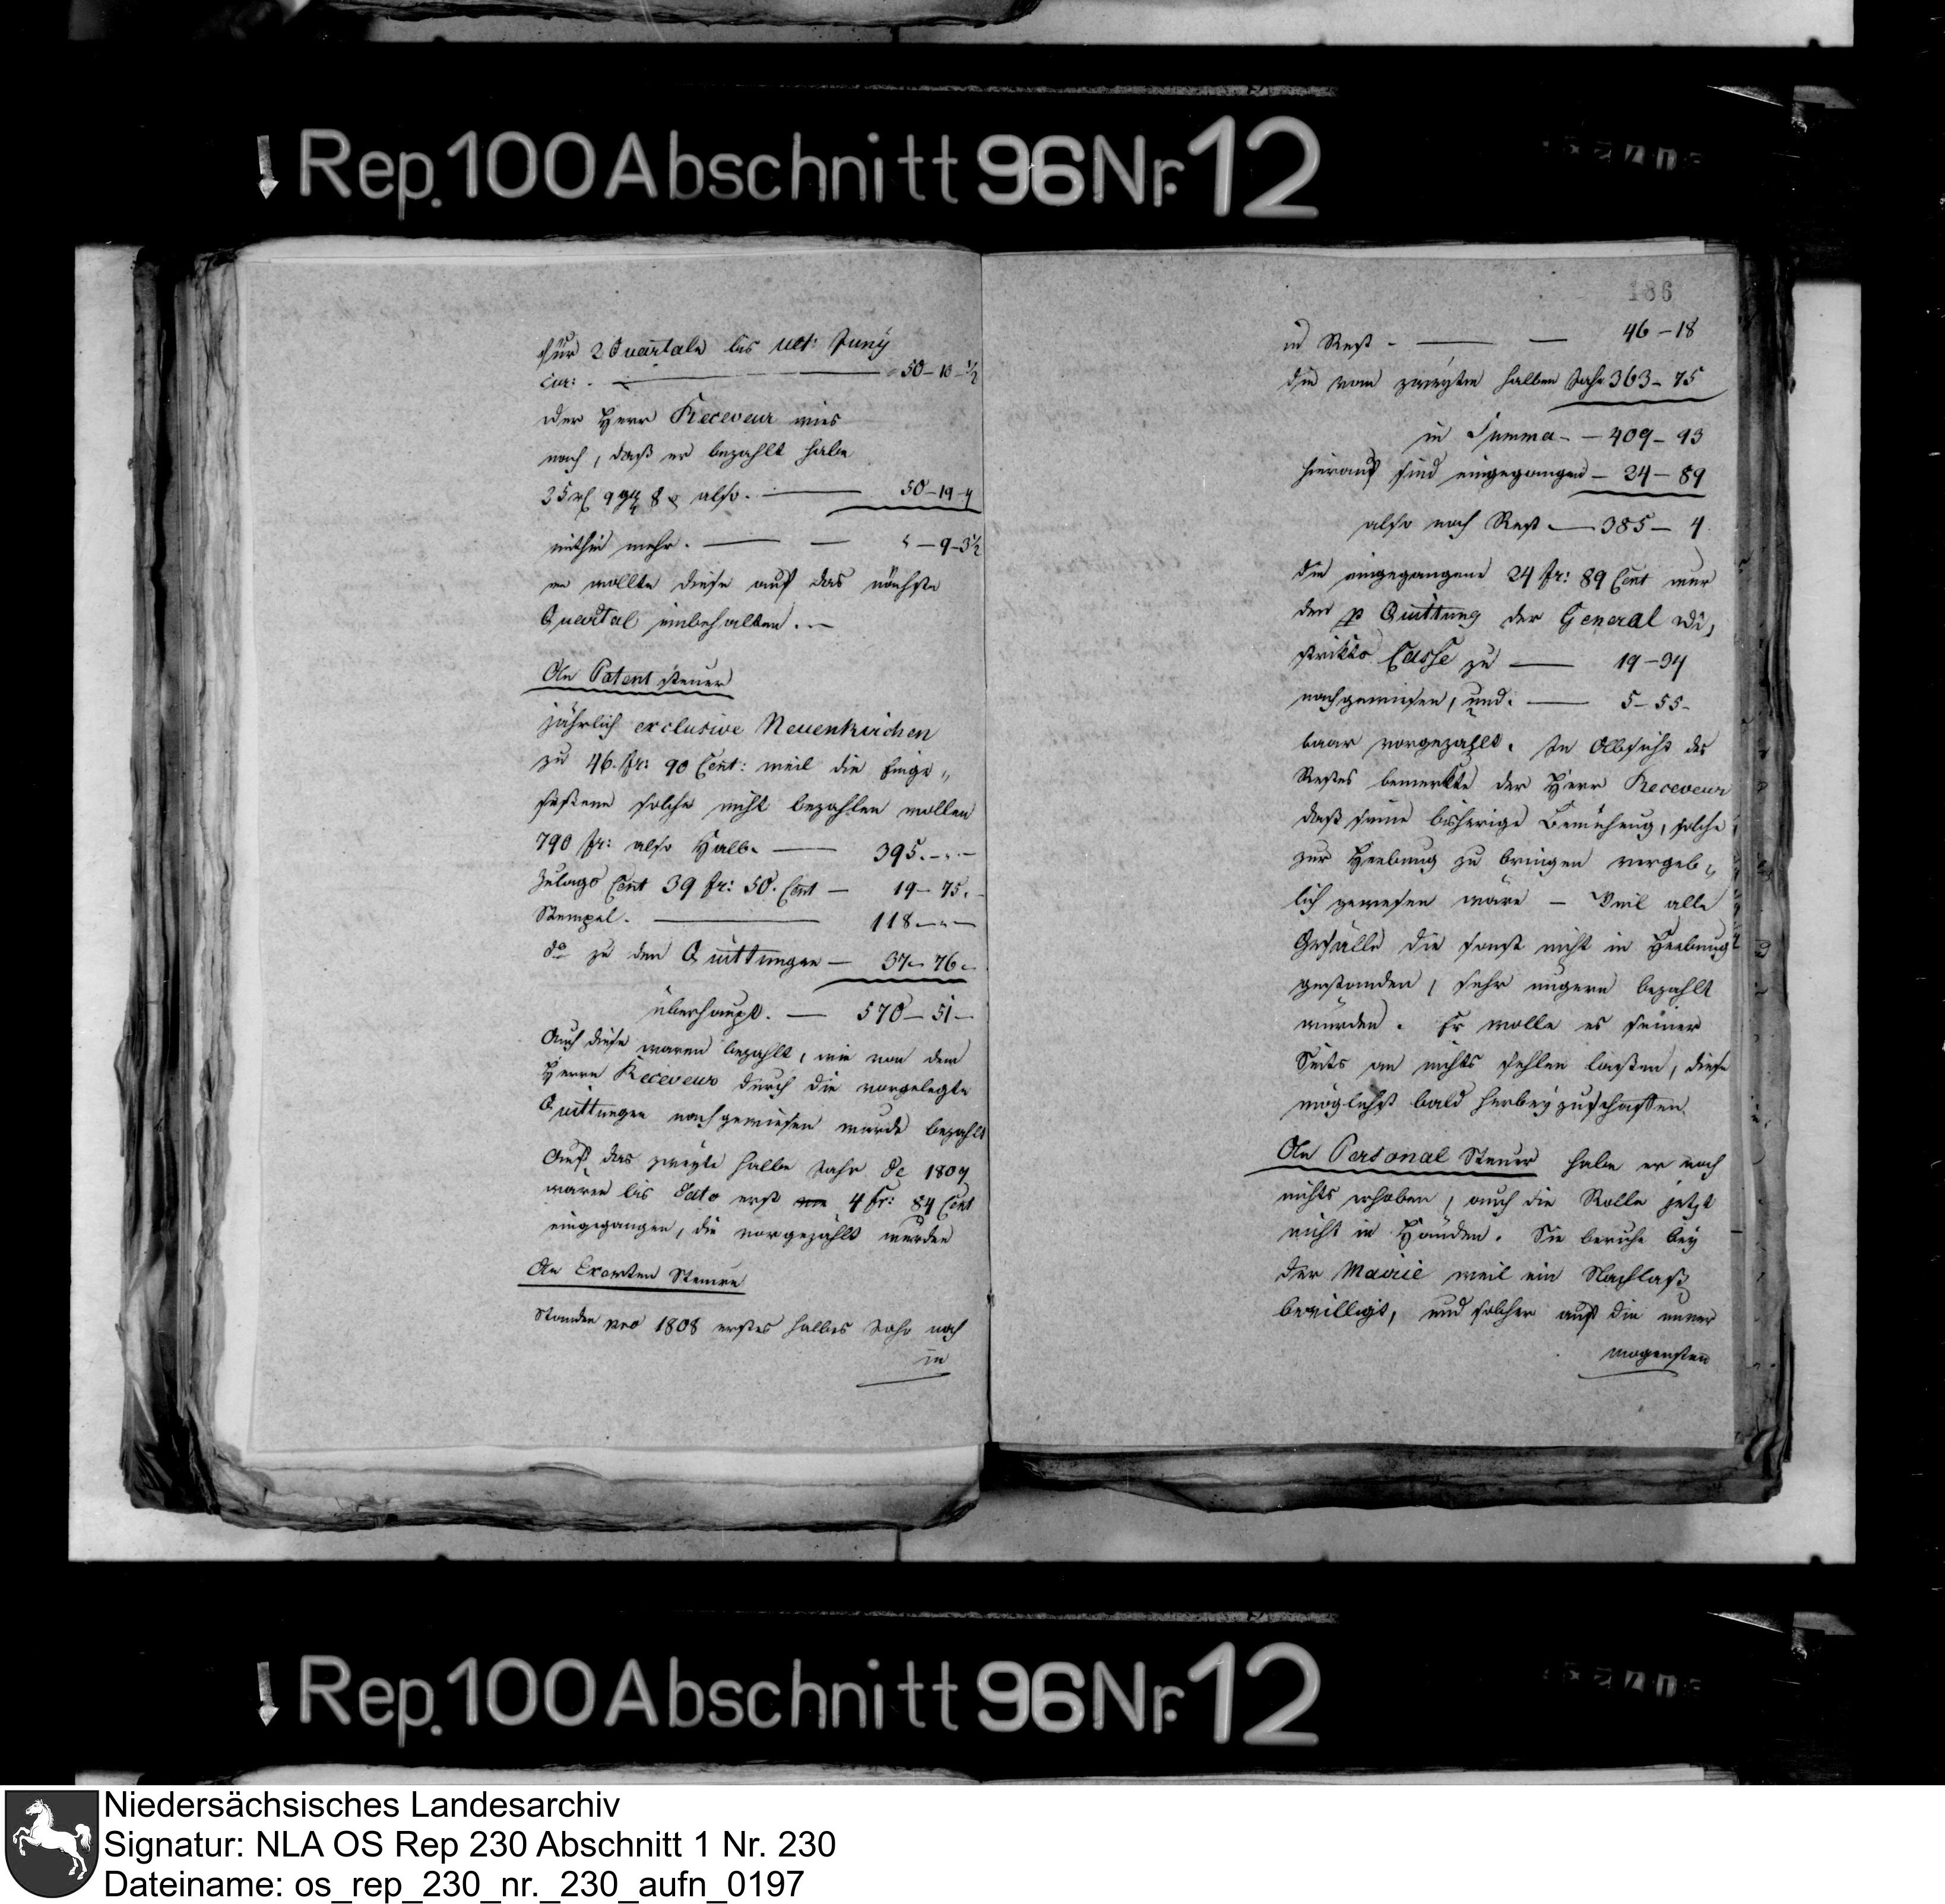 Rep. 100 Abschnitt 96 Nr. 12
für 2 Quartale bis ult: Juny
cur: . — 50 – 10 – ½
der Herr Receveur wies
nach, daß er bezahlt habe
35 rl 9 ggr 8 also . — 50 – 19 – 4
mithin mehr . — — " – 9 – 3½
er wollte diese auf das nächste
Quartal einbehalten . —
An Patent steuer
jährlich exclusive Neuenkirchen
zu 46. fr: 90 Cent: weil die Einge„
seßene solche nicht bezahlen wollen
790 fr: also Halb. — 395. – . –
Zulags Cent 39 fr: 50. Cent — 19 – 75.
Stempel . — 118 – " –
do zu den Quittungen — 37 – 76 .
überhaupt . — 570 – 51 –
Auch diese waren bezahlt, wie von dem
Herrn Receveur durch die vorgelegte
Quittungen nachgewiesen wurde bezahlt
Auf das zweyte halbe Jahr de 1809
waren bis dato erst 4 fr: 84 Cent
eingegangen, die vorgezählt wurden
An Exemten Steuer
Standen pro 1808 erstes halbes Jahr noch
in
186
in Rest . — — 46 – 18
die vom zweyten halben Jahr 363 – 75
in Summa – – 409 – 93
hierauf sind eingegangen – 24 – 89
also noch Rest . — 385 – 4
die eingegangene 24 fr: 89 Cent wur
den p Quittung der General Di„
strikts Casse zu — 19 – 34
nachgewiesen, und . — 5 – 55 –
baar vorgezahlt. In Absicht des
Restes bemerkte der Herr Receveur
daß seine bisherige Bemühung, solche
zur Heebung zu bringen vergeb„
lich gewesen wäre — Weil alle
Gefälle die sonst nicht in Heebung
gestanden, sehr ungern bezahlt
würden . Er wolle es seiner
Seits an nichts fehlen laßen, diese
möglichst bald herbeyzuschaffen
An Personal Steuer habe er noch
nichts erhoben, auch die Rolle jetzt
nicht in Händen. Sie beruhe bey
der Mairie weil ein Nachlaß
bewilligt, und solcher auf die unver
mogensten
Rep. 100 Abschnitt 96 Nr. 12
Niedersächsisches Landesarchiv
Signatur: NLA OS Rep 230 Abschnitt 1 Nr. 230
Dateiname: os_rep_230_nr._230_aufn_0197